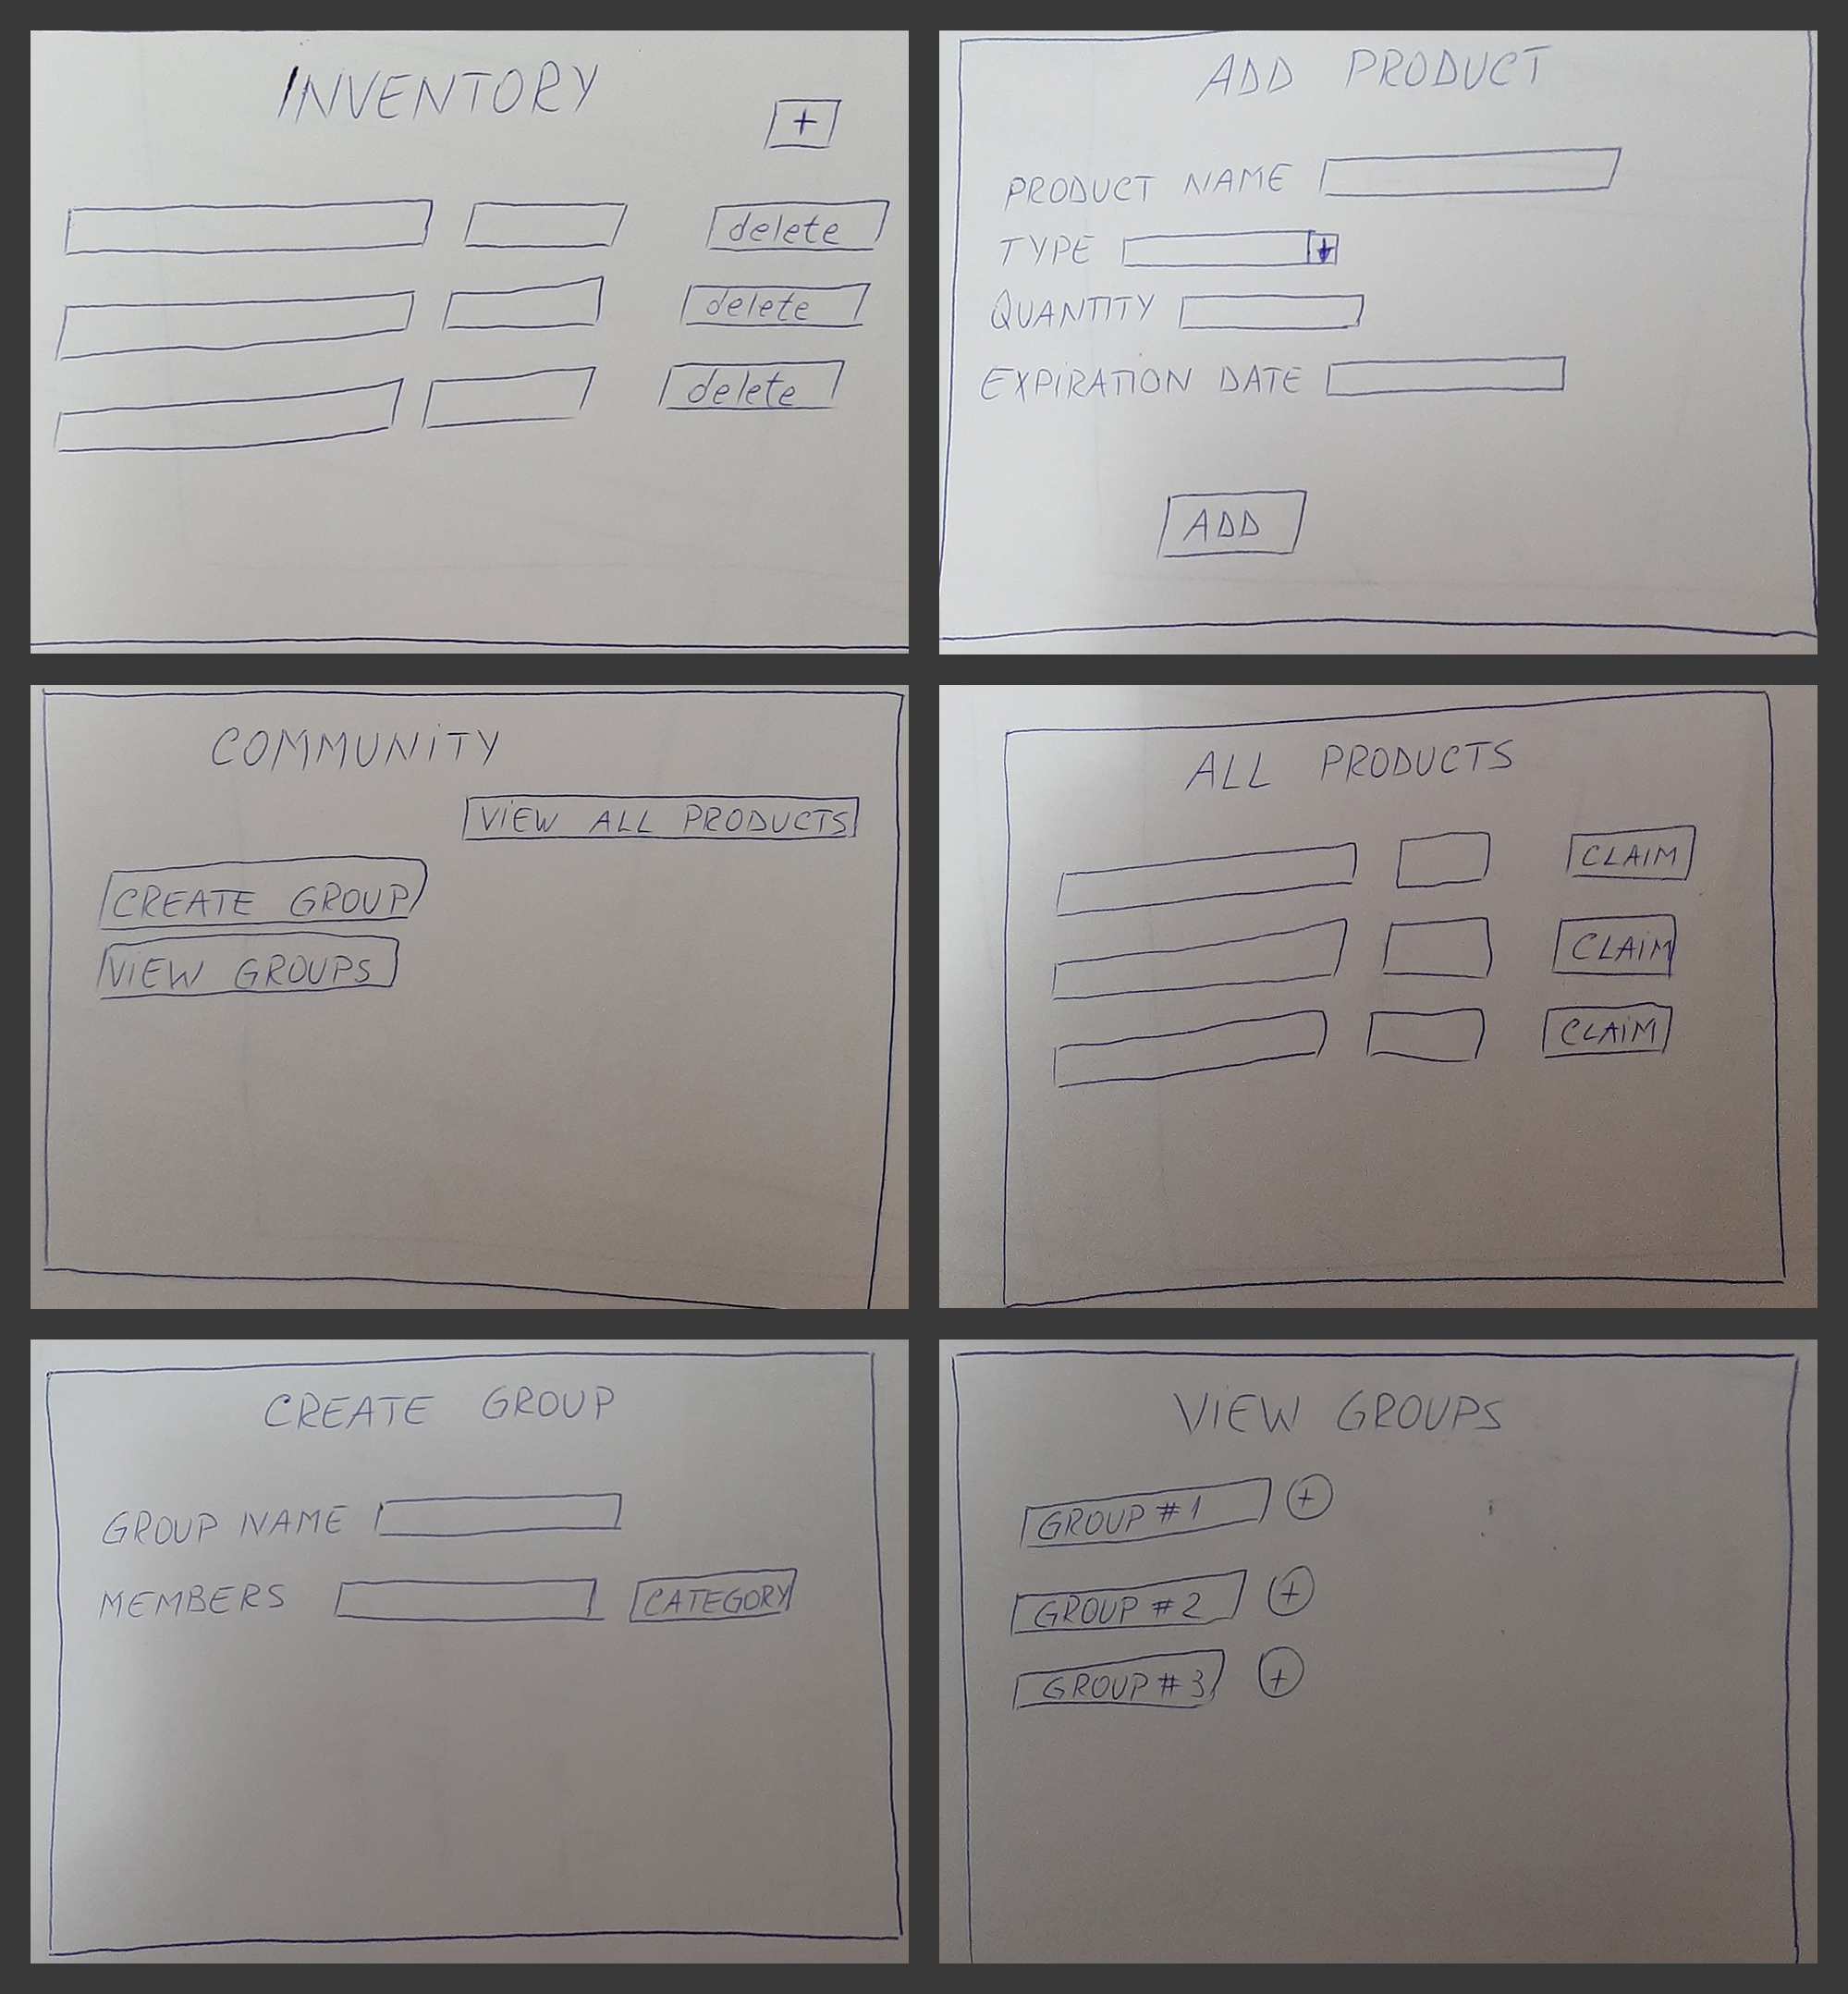 INVENTORY
+
delete
delete
delete
ADD PRODUCT
PRODUCT NAME
TYPE
QUANTITY
EXPIRATION DATE
ADD
COMMUNITY
VIEW ALL PRODUCTS
CREATE GROUP
VIEW GROUPS
ALL PRODUCTS
CLAIM
CLAIM
CLAIM
CREATE GROUP
GROUP NAME
MEMBERS CATEGORY
VIEW GROUPS
GROUP #1 +
GROUP #2 +
GROUP #3 +